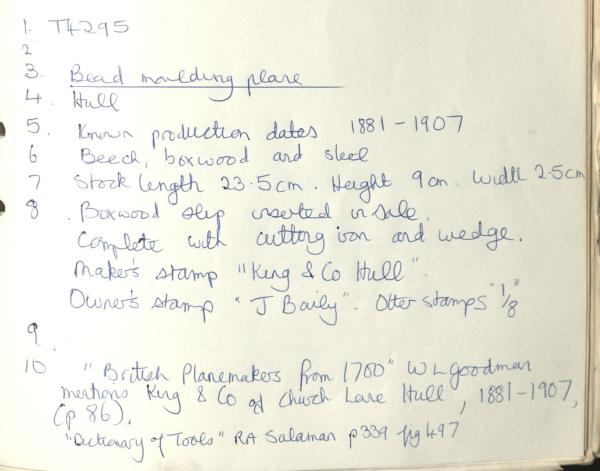 1. T4295
2
3. Bead moulding plane
4. Hull
5. Known production dates 1881-1907
6 Beech, boxwood and steel
7 Stock length 23.5cm. Height 9cm. Width 2.5cm
8. Boxwood slip inserted in sole.
Complete with cutting iron and wedge.
Maker's stamp "King & Co Hull".
Owner's stamp "J Baily". Other stamps "1/8"
9.
10 "British Planemakers from 1700" W L Goodman
mentions King & Co of Church Lane Hull, 1881-1907,
(p 86),
"Dictionary of Tools" RA Salaman p339 fig 497